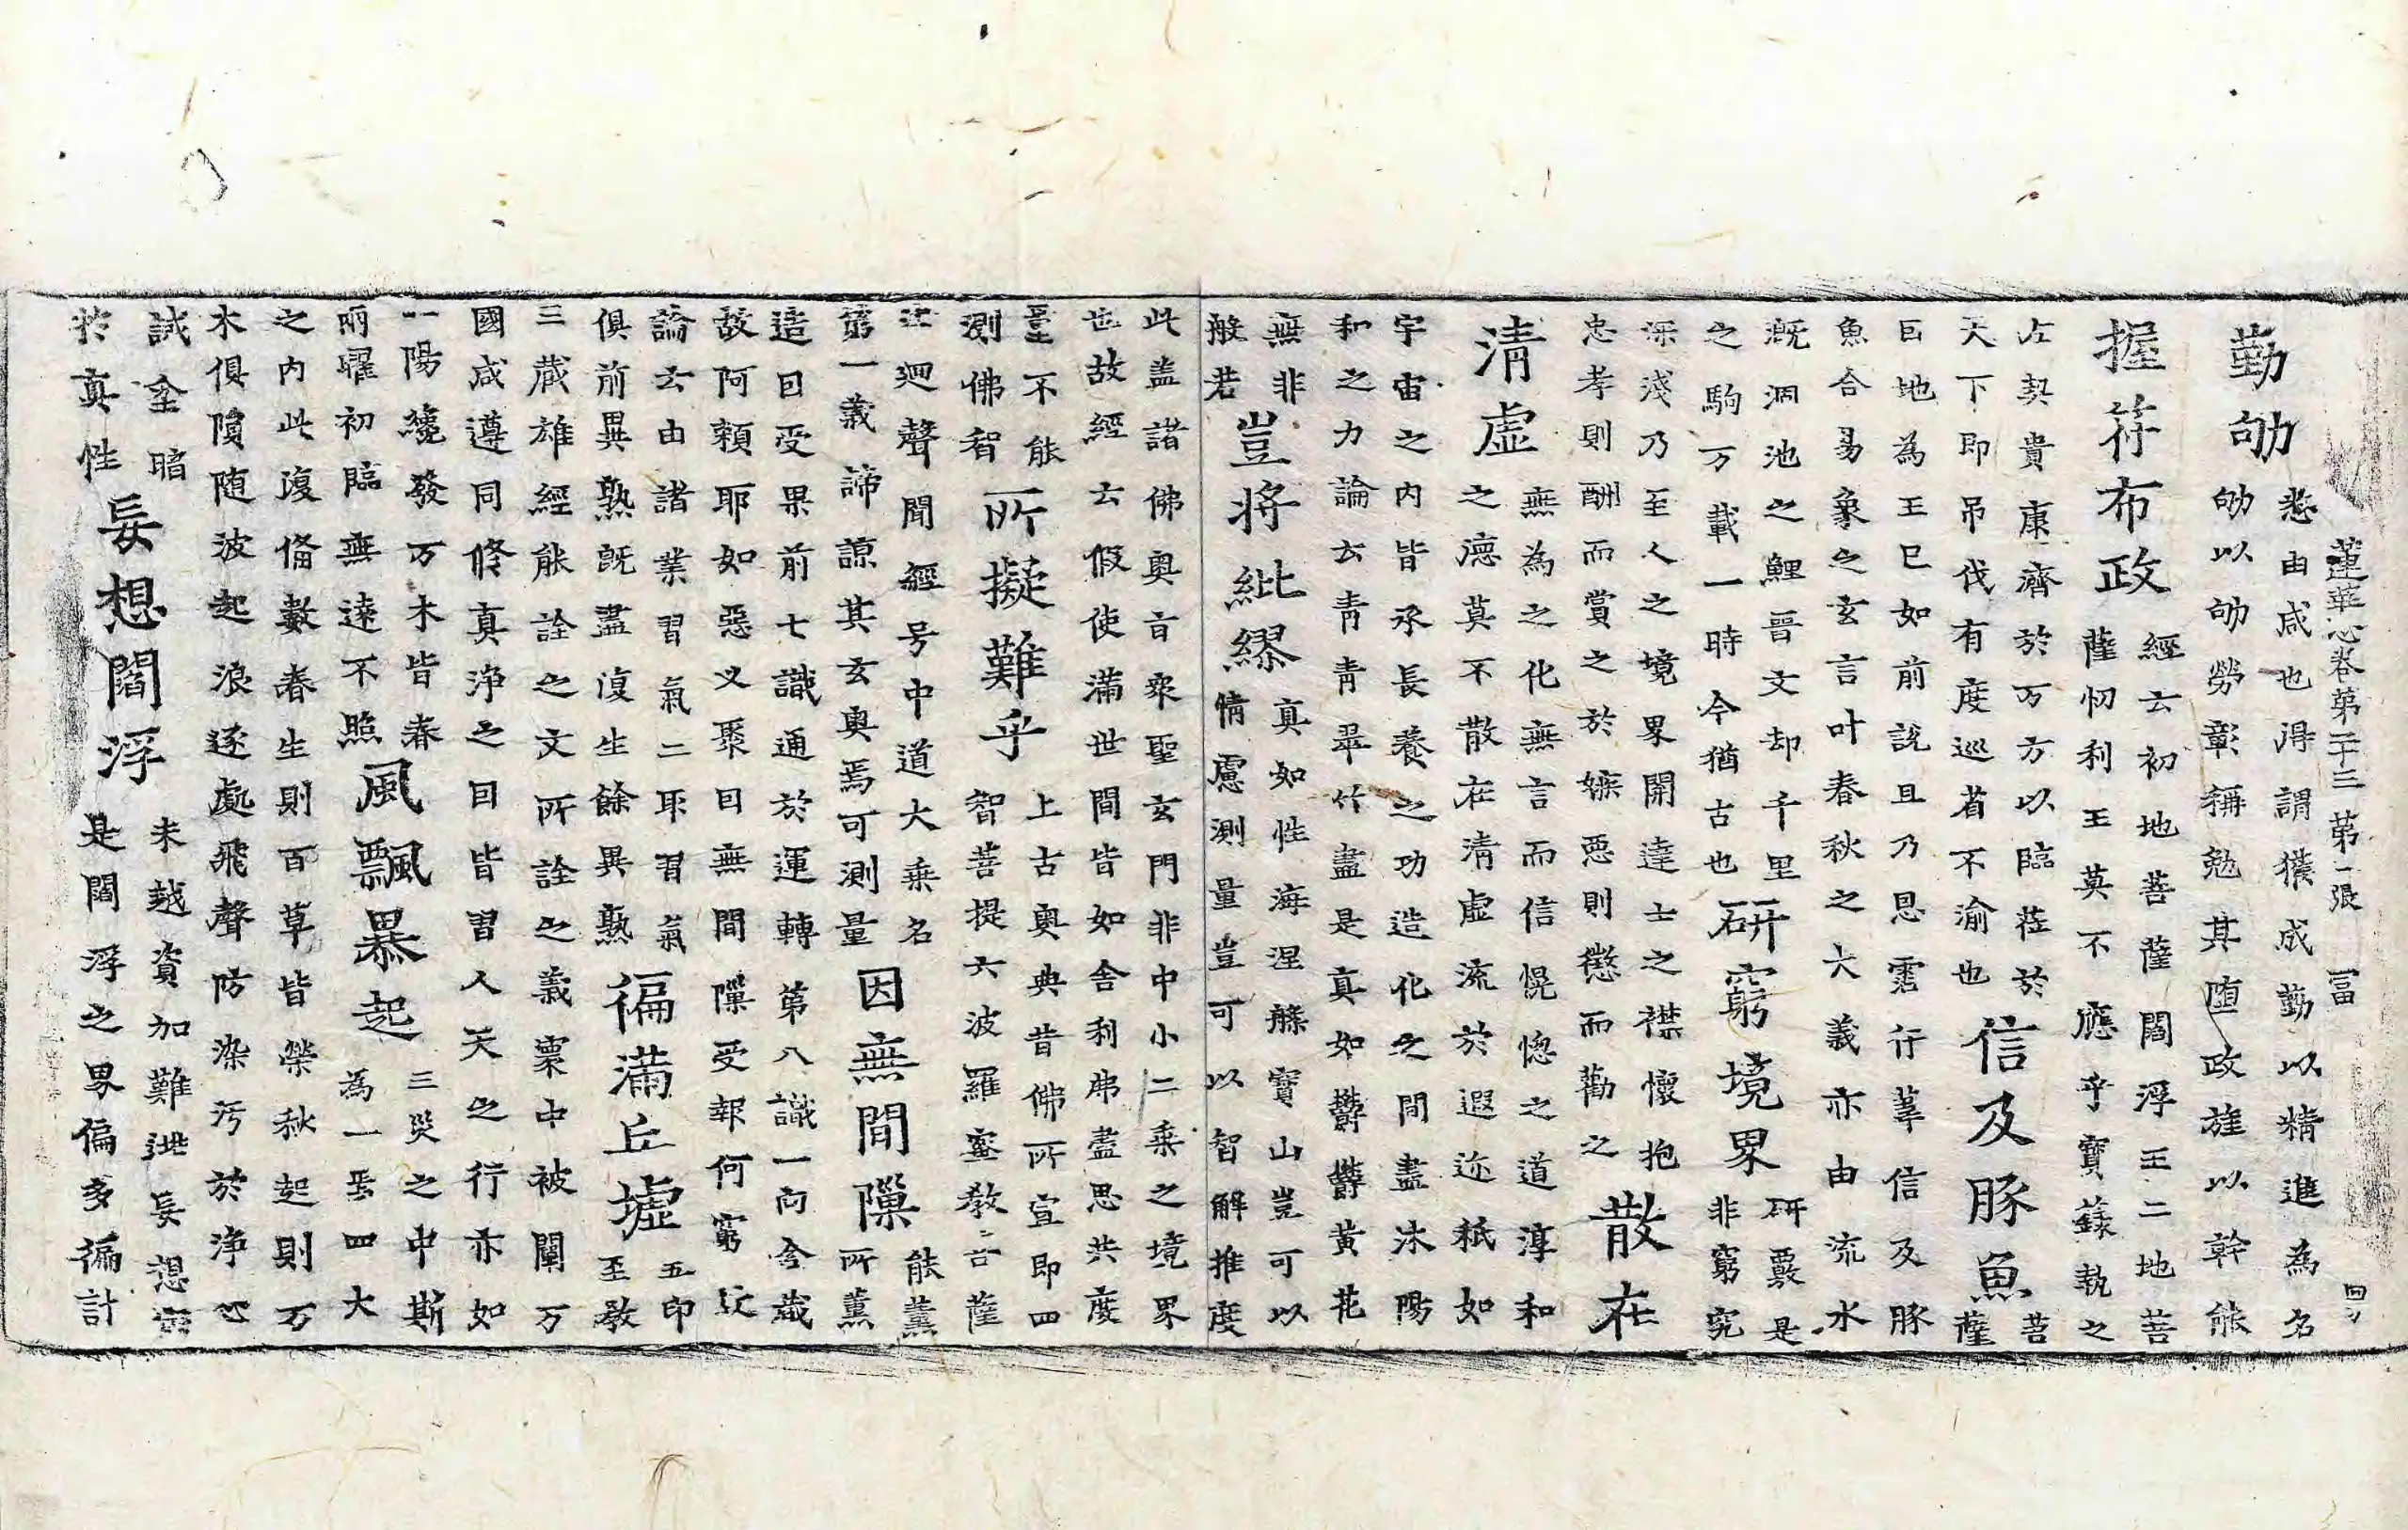 蓮華心卷第二十三 第一張 冨 四
勤劬
悉由咸也得謂獲成勤以精進為名
劬以劬勞彰稱勉其堕政旌以幹能
握符布政
經云初地菩薩閻浮王二地菩
薩忉利王莫不應乎寶籙執之
左契貴康濟於万方以臨莅於
天下即吊伐有度巡省不渝也
信及豚魚
菩
薩
巨地為王已如前説且乃恩霑行葦信及豚
魚合易象之玄言叶春秋之大義亦由流水
既涸池之鯉晋文却千里
之駒万載一時今猶古也
研窮境界
研覈是
非窮究
深淺乃至人之境界開達士之襟懷抱
忠孝則酬而賞之於嫉惡則懲而勸之
散在
清虚
無為之化無言而信愰惚之道淳和
之德莫不散在清虚流於遐迩秖如
宇宙之内皆承長養之功造化之間盡沐陽
和之力論云青青翠竹盡是真如欝欝黄花
無非
般若
豈將紕繆
真如性海涅槃寶山豈可以
情慮測量豈可以智解推度
此盖諸佛奥旨衆聖玄門非中小二乗之境界
也故經云假使滿世間皆如舍利弗盡思共度
量不能
測佛智
所擬難乎
上古奥典昔佛所宣即四
智菩提六波羅蜜教菩薩
法迴聲聞經号中道大乗名
第一義諦諒其玄奥焉可測量
因無間隟
能薫
所薫
造因受果前七識通於運轉第八識一向含藏
故阿頼耶如惡叉聚因無間隟受報何窮故
論云由諸業習氣二取習氣
俱前異熟既盡復生餘異熟
徧滿丘墟
五印
至教
三藏雄經能詮之文所詮之義稟中被闡万
國咸遵同修真浄之因皆習人天之行亦如
一陽纔發万木皆春
兩曜初臨無遠不照
風飄暴起
三災之中斯
為一焉四大
之内此復俻數春生則百草皆榮秋起則万
木俱隕随波起浪逐處飛聲防染污於浄心
誡坌暗
於真性
妄想閻浮
未越資加難逃妄想
是閻浮之界偏多徧計